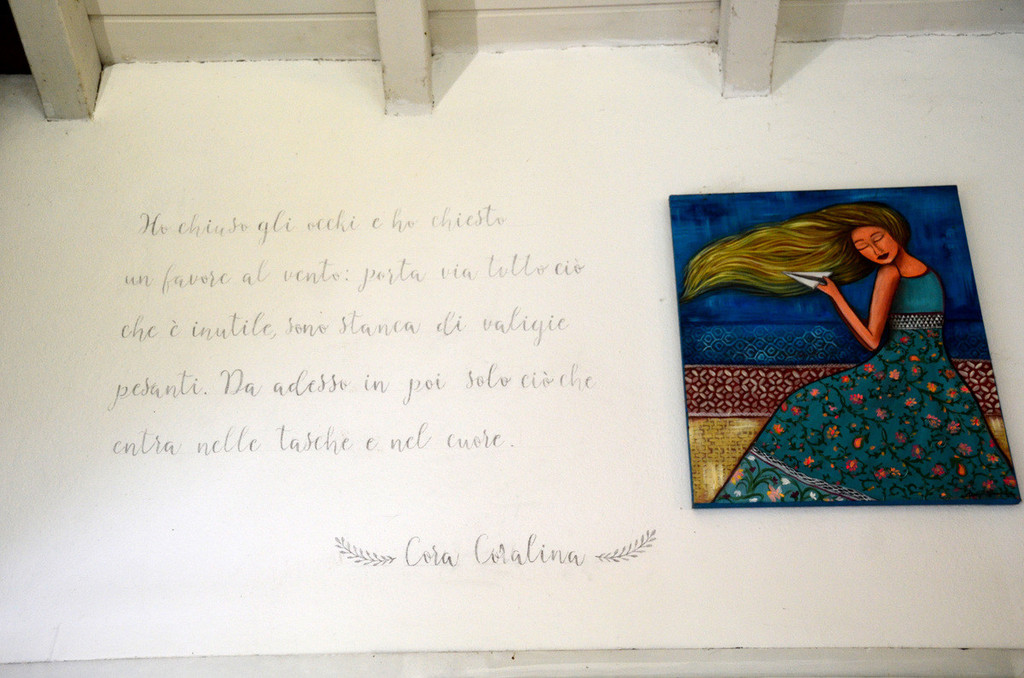 Ho chiuso gli occhi e ho chiesto
un favore al vento: porta via tutto ciò
che è inutile, sono stanca di valigie
pesanti. Da adesso in poi solo ciò che
entra nelle tasche e nel cuore.
Cora Coralina